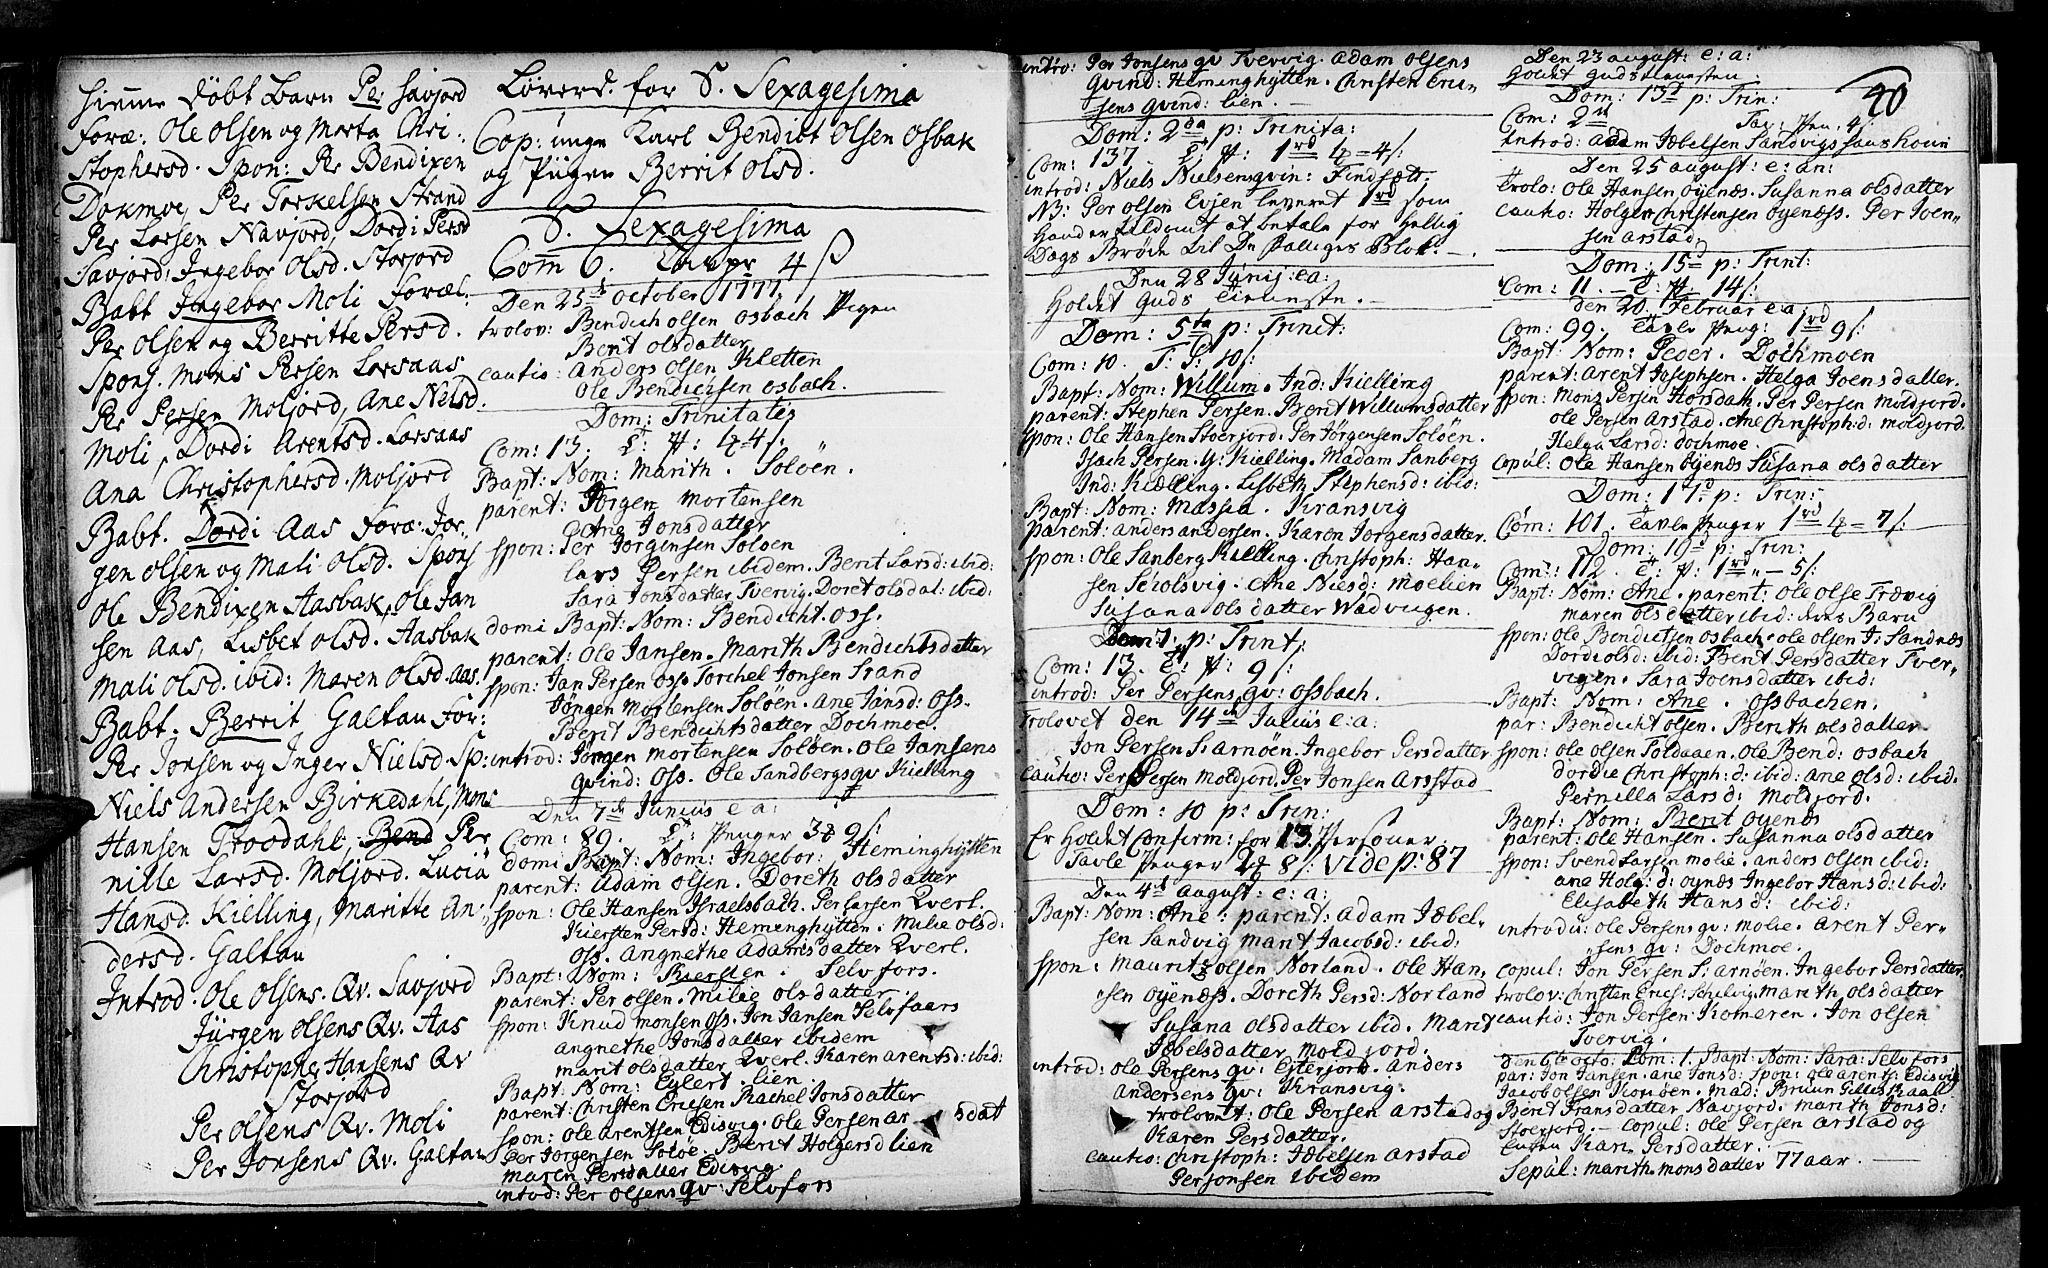 hiemme döbt Barn Per Savjord
foræ: Ole Olsen og Marta Chri-
stophersd. Spon: Per Bendixen
Dokmoe, Per Torkelsen Strand
Per Larsen Navjord, Dordi Persd
Savjord, Ingebor Olsd. Storjord
Babt Ingebor Moli Foræl:
Per Olsen og Berritte Persd.
Spons. Mons Persen Larsaas
Per Persen Moljord, Ane Nelsd.
Moli, Dordi Arentsd. Larsaas
Ana Christophersd. Moljord
Babt. Dordi Aas Foræ: Jör-
gen Olsen og Mali Olsd. Spons
Ole Bendixen Aasbak, Ole Jan
sen Aas, Lisbet Olsd. Aasbak
Mali Olsd. ibid: Maren Olsd. Aas.
Babt. Berrit Galtau For:
Per Jonsen og Inger Nielsd. Sp:
Niels Andersen Birkedahl, Mons
Hansen Troodahl, Bend Per
nille Larsd. Moljord. Lucia
Hansd. Kielling, Maritte An-
dersd. Galtau
Introd. Ole Olsens Qv. Savjord
Jürgen Olsens Qv. Aas
Christophe Hansens Qv
Storjord
Per Olsens Qv. Moli
Per Jonsens Qv. Galtau
Löverd. for S. Sexagesima
Cop: unge Karl Bendict Olsen Osbak
og Piigen Berrit Olsd.
S. Sexagesima
Com 6. Tavpr 4 ß
Den 25 October 1777
trolov: Bendich Olsen Osbach Pigen
Berit Olsdatter
cautio: Anders Olsen Kletten
Ole Bendichsen Osbach.
Dom: Trinitatis
Com: 13. T: P: 4 4/:
Bapt: Nom: Marith. Soløen.
parent: Jörgen Mortensen
Ane Jonsdatter
spon: Per Jörgensen Soløen
Lars Persen ibidem. Berit Larsd: ibid:
Sara Jonsdatter Tvervig. Doret Olsdat: ibid:
domi Bapt: Nom: Bendicht. Oss.
parent: Ole Jansen. Marith Bendichtsdatter
spon: Jan Persen Oss Torchel Jonsen Strand
Jörgen Mortensen Soløen. Ane Jansd: Oss.
Berit Bendichtsdatter Dochmoe.
introd: Jörgen Mortensen Soløen. Ole Jansens
Qvind: Oss. Ole Sandbergs qv Kielling
Den 7de Junius e a:
Com: 89. T: Penger 3 9/:
domi Bapt: Nom: Ingebor: Heminghytten
parent: Adam Olsen. Doreth Olsdatter
spon: Ole Hansen Israelsbach. Per Larsen Qverl.
Kiersten Persd: Heminghytten. Milie Olsd:
Oss. Angnethe Adamsdatter Qverl.
Bapt: Nom: Kiersten. Selvfors.
parent: Per Olsen. Milie Olsdatter
spon: Knud Monsen Oss. Jon Jansen Selvfaars
Angnethe Jonsdatter ibidem
Marit Olsdatter Qverl. Karen Arentsd: ibid:
Bapt: Nom: Eylert. Lien
parent: Christen Ericsen Rachel Jonsdatter
spon: Ole Arentsen Edisvig. Ole Persen Ar- sdat
Per Jörgensen Soløe. Berit Holgersd Lien
Maren Persdatter Edisvig.
introd: Per Olsens qv: Selvfors
intro: Per Jonsens qv Tvervig. Adam Olsens
Qvind: Heminghytten. Christen Eric-
sens Qvind: Lien.
Dom: 2da p: Trinita:
Com: 137. T: P: 1rd 4 = 4/:
introd: Niels Nielsens qvin: Findsæt:
NB: Per Olsen Evjen leveret 1rd som
Hand er tildömt at betale for Hellig
Dags Bröde til De Fattiges Blok.
Den 28 Junij: e a:
Holdet Guds tieneste.
Dom: 5ta p: Trinit:
Com: 10. T: P: 10/:
Bapt: Nom: Willum. Ind: Kielling
parent: Stephen Persen. Berit Willumsdatter
spon: Ole Hansen Stoerjord. Per Jörgensen Soløen.
Isach Persen. Y: Kielling. Madam Sanberg
Ind: Kielling. Lisbeth Stephensd: ibid:
Bapt: Nom: Massea. Kransvig
parent: Anders Andersen. Karen Jörgensdatter.
spon: Ole Sanberg Kielling. Christoph: Han-
sen Scholsvig. Ane Niesd: Moelien
Susana Olsdatter Wadvugen.
Dom: 7 p: Trinit:
Com: 13. T: P: 9/:
introd: Per Persens qv: Ossbach.
Trolovet den 14de Julius e: a:
Jon Persen S: Arnøen. Ingebor Persdatter
cautio: Per Persen Moldjord. Per Jonsen Arsstad
Dom: 10 p: Trin:
Er Holdet Confirm: for 13 Personer.
Tavle Penger 2 8/: vide p: 87
Den 4de August: e: a:
Bapt: Nom: Ane: parent: Adam Jæbel-
sen Sandvig Marit Jacobsd: ibid:
spon: Mauritz Olsen Norland. Ole Han,
sen Øynæss. Doreth Persd: Norland
Susana Olsdatter ibid. Marit
Jæbelsdatter Moldjord.
introd: Ole Persens qv: Ejterjord. Anders
Andersens qv: Kransvig.
trolovet: Ole Persen Arstad og
Karen Persdatter.
cautio: Christoph: Jæbelsen Arstad
Per Jonsen ibidem
Den 23 August: e: a:
Holdet Gudstienesten.
40
Dom: 13d p: Trin:
Com: 2 Tav: Pen: 4/:
Introd: Adam Jæbelsen Sandvigs hans konn
Den 25 August: e: an:
trolo: Ole Hansen Øynæs. Susanna Olsdatter
cautio: Holger Christensen Øynæss. Per Joen-
sen Arstad
Dom: 15d p: Trinit:
Com: 11. T: P: 14/:
den 20. Februar e a
Com: 99. Tavle Peng: 1rd 9/:
Bapt: Nom: Peder. Dochmoen
parent: Arent Josephsen. Helga Joensdatter.
spon: Mons Persen Horsdah. Per Persen Moldjord.
Ole Persen Arstad. Ane Christoph:d: Moldjord.
Helga Larsd: Dochmoe.
copul: Ole Hansen Øynæs Susana Olsdatter
Dom: 17d p: Trin:
Com: 101. Tavle Penger 1rd 4 = 7/:
Dom: 19d p: Trin:
Com: 112. T: P: 1rd - 5/:
Bapt: Nom: Ane. parent: Ole Olse Trævig
Maren Olsdatter ibid:
spon: Ole Bendictsen Osbach. Ole Olsen J: Sandnæs
Dordi Olsd: ibid: Berit Persdatter Tver-
vigen. Sara Joensdatter ibid:
Bapt: Nom: Ane. Ossbachen.
par: Bendicht Olsen. Berith Olsdatter
spon: Ole Olsen Soldaaen. Ole Bend: Osbach
Dordie Christoph:d: ibid: Ane Olsd: ibid:
Pernilla Larsd: Moldjord.
Bapt: Nom: Berit Øynæs
parent: Ole Hansen. Susanna Olsdatter
spon: Svend Larsen Molie. Anders Olsen ibid:
Ane Holg:d: Øynæs Ingebor Hansd: ibid:
Elisabeth Hansd: ibid:
introdu: Ole Persens qv: Molie. Arent Per-
sens qv: Dochmoe.
copul: Jon Persen S: Arnøen. Ingebor Persdatter.
trolov: Christen Erics: Scholvig. Marith Olsdatter
cautio: Jon Persen Komeren. Jon Olsen
Tvervig.
Den 6te Octo: Com: 1. Bapt: Nom: Sara: Selvfors
par: Jon Jansen. Ane Jonsd: spon: Ole Arents: Edisvig
Jacob Olsen Komøen. Mad: Bruun Gilleskaal
Berit Fransdatter Navjord. Marith Jonsd:
Stoerjord. copul: Ole Persen Arstad og
Karn Persdatter.
Sepul: Marith Monsdatter 77 aar.